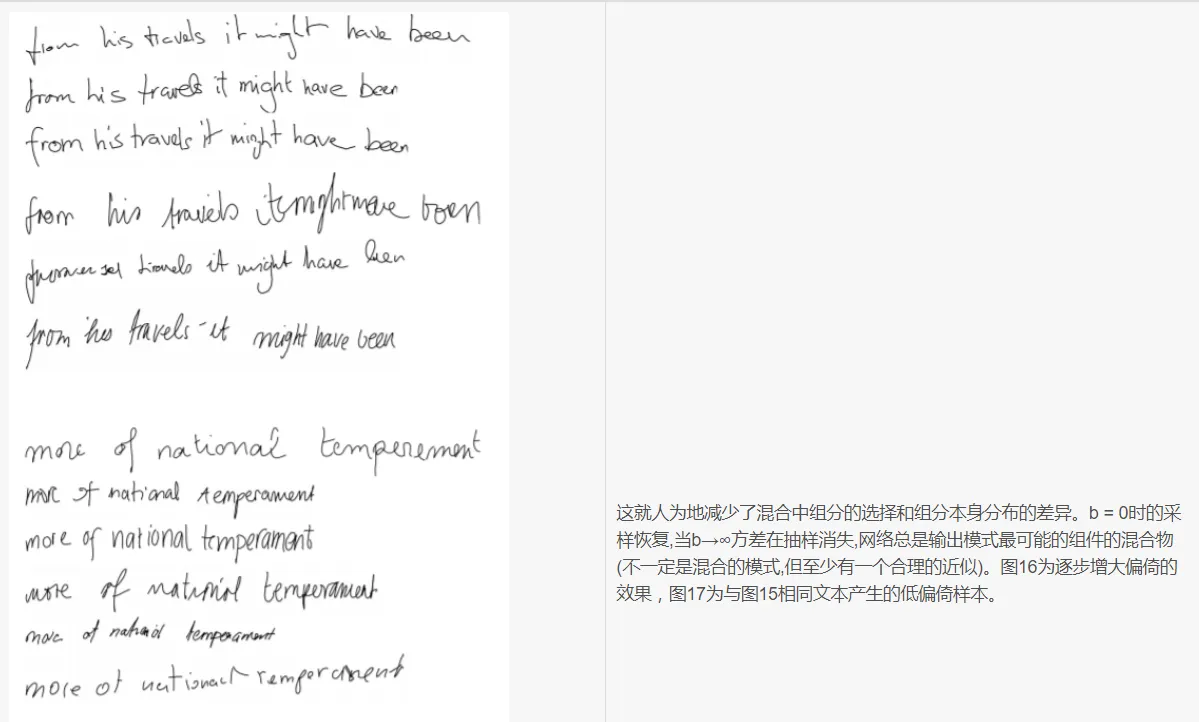 from his travels it might have been
from his travels it might have been
from his travels it might have been
from his travels it might have been
travels it might have been
from his travels it might have been
more of national temperement
more of national temperament
more of national temperament
more of national temperament
more of national temperament
more of national temperament
这就人为地减少了混合中组分的选择和组分本身分布的差异。b = 0时的采
样恢复,当b→∞方差在抽样消失,网络总是输出模式最可能的组件的混合物
(不一定是混合的模式,但至少有一个合理的近似)。图16为逐步增大偏倚的
效果，图17为与图15相同文本产生的低偏倚样本。